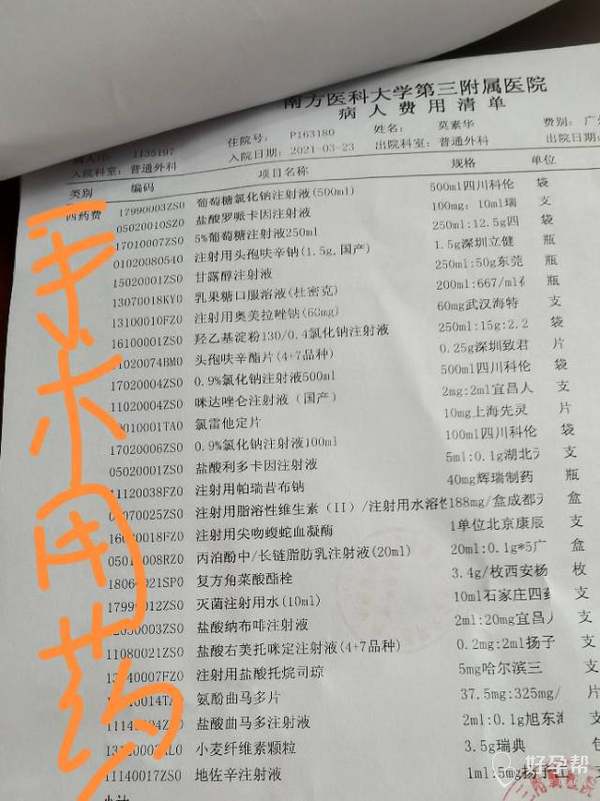 南方医科大学第三附属医院
病人费用清单
住院号: P163180 姓名: 莫素华 费别:
1135107 入院日期: 2021-03-23 出院科室: 普通外科
入院科室: 普通外科
类别 编码 项目名称 规格 单位
西药费 17990003ZS0 葡萄糖氯化钠注射液(500ml) 500ml四川科伦 袋
05020010SZ0 盐酸罗哌卡因注射液 100mg: 10ml瑞 支
17010007ZS0 5%葡萄糖注射液250ml 250ml:12.5g四 袋
01020080540 注射用头孢呋辛钠(1.5g,国产) 1.5g深圳立健 瓶
15020001ZS0 甘露醇注射液 250ml:50g东莞 瓶
13070018KY0 乳果糖口服溶液(杜密克) 200ml:667/ml 瓶
13100010FZ0 注射用奥美拉唑钠(60mg) 60mg武汉海特 支
16100001ZS0 羟乙基淀粉130/0.4氯化钠注射液 250ml:15g:2.2 袋
01020074BM0 头孢呋辛酯片(4+7品种) 0.25g深圳致君 片
17020004ZS0 0.9%氯化钠注射液500ml 500ml四川科伦 袋
11020004ZS0 咪达唑仑注射液(国产) 2mg:2ml宜昌人 支
0010001TA0 氯雷他定片 10mg上海先灵 片
17020006ZS0 0.9%氯化钠注射液100ml 100ml四川科伦 袋
05020001ZS0 盐酸利多卡因注射液 5ml:0.1g湖北 支
11120038FZ0 注射用帕瑞昔布钠 40mg辉瑞制药 瓶
070025ZS0 注射用脂溶性维生素(II)/注射用水溶性 188mg/盒成都 盒
0018FZ0 注射用尖吻蝮蛇血凝酶 1单位北京康辰 支
008RZ0 丙泊酚中/长链脂肪乳注射液(20ml) 20ml:0.1g*5广 盒
021SP0 复方角菜酸酯栓 3.4g/枚西安杨 枚
012ZS0 灭菌注射用水(10ml) 10ml石家庄四药 支
0003ZS0 盐酸纳布啡注射液 2ml:20mg宜昌人 支
11080021ZS0 盐酸右美托咪定注射液(4+7品种) 0.2mg:2ml扬子 支
0007FZ0 注射用盐酸托烷司琼 5mg哈尔滨三 支
0014TA 氨酚曲马多片 37.5mg:325mg/ 片
盐酸曲马多注射液 2ml:0.1g旭东海 支
小麦纤维素颗粒 3.5g瑞典
11140017ZS0 地佐辛注射液 1ml:5mg扬子江 支
小计
手术用药
好孕帮